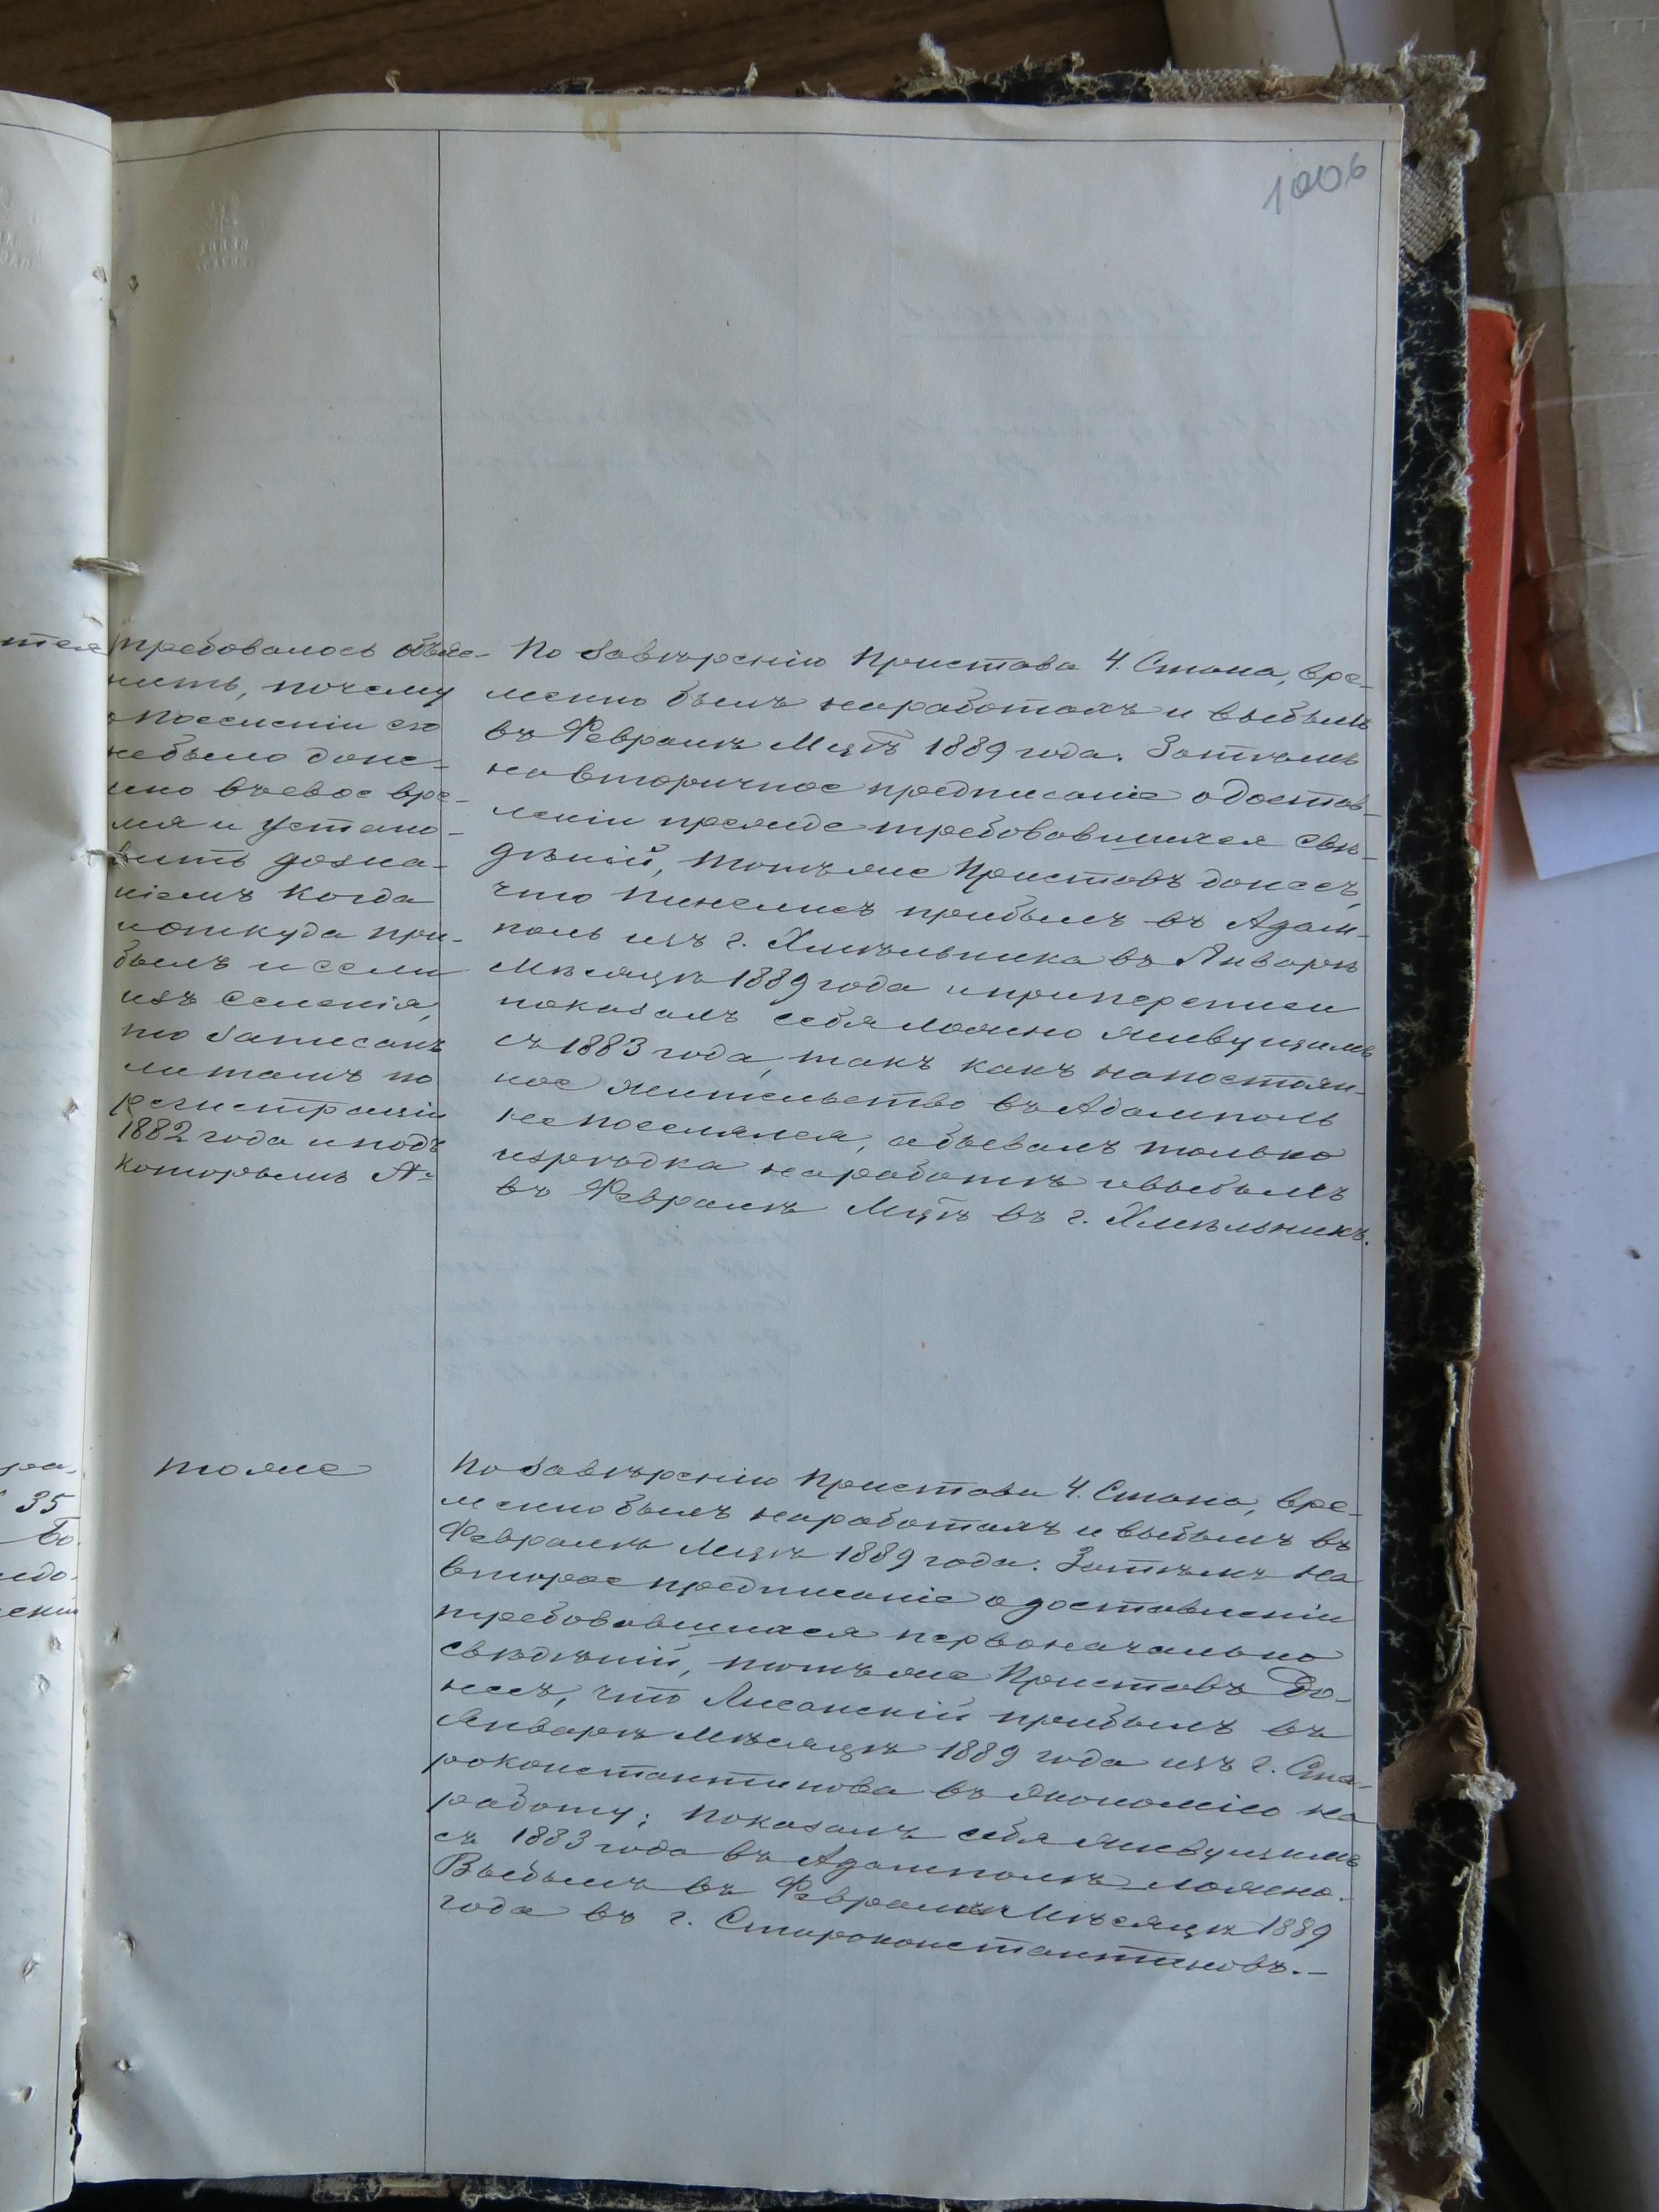 1006
требовалось объяс-
нить, почему
о поселеніи его
небыло доне-
сено въсвое вре-
мя и устано-
вить дозна-
ніемъ когда
и откуда при-
былъ и если
изъ селенія,
то записанъ
ли тамъ по
регистраціи
1882 года и подъ
которымъ №
По завѣренію Пристава 4. Стана, вре-
менно былъ наработахъ и выбылъ
въ Февралѣ Мцѣ 1889 года. Затѣмъ
навторичное предписаніе о достав-
леніи прежде требовавшихся свѣ-
дѣній, тотъ же Приставъ донесъ,
что Пинелисъ прибылъ въ Адам-
поль изъ г. Хмѣльника въ Январѣ
Мѣсяцѣ 1889 года и приперепеси
показалъ себя ложно живущимъ
съ 1883 года, такъ какъ напостоян-
ное жительство въ Адамполь
непоселялся, а бывалъ только
изрѣдка наработѣ и выбылъ
въ Февралѣ Мцѣ въ г. Хмѣльникъ.
тоже
По завѣренію Пристава 4. Стана, вре-
менно былъ наработахъ и выбылъ въ
Февралѣ Мцѣ 1889 года. Затѣмъ на
второе предписаніе о доставленіи
требовавшихся первоначально
свѣдѣній, тотъ же Приставъ до-
несъ, что Лисанскій прибылъ въ
Январѣ Мѣсяцѣ 1889 года изъ г. Ста-
роконстантинова въ Экономію на
работу; показалъ себя живущимъ
съ 1883 года въ Адамполѣ ложно.
Выбылъ въ Февралѣ Мѣсяцѣ 1889
года въ г. Староконстантиновъ.-
35